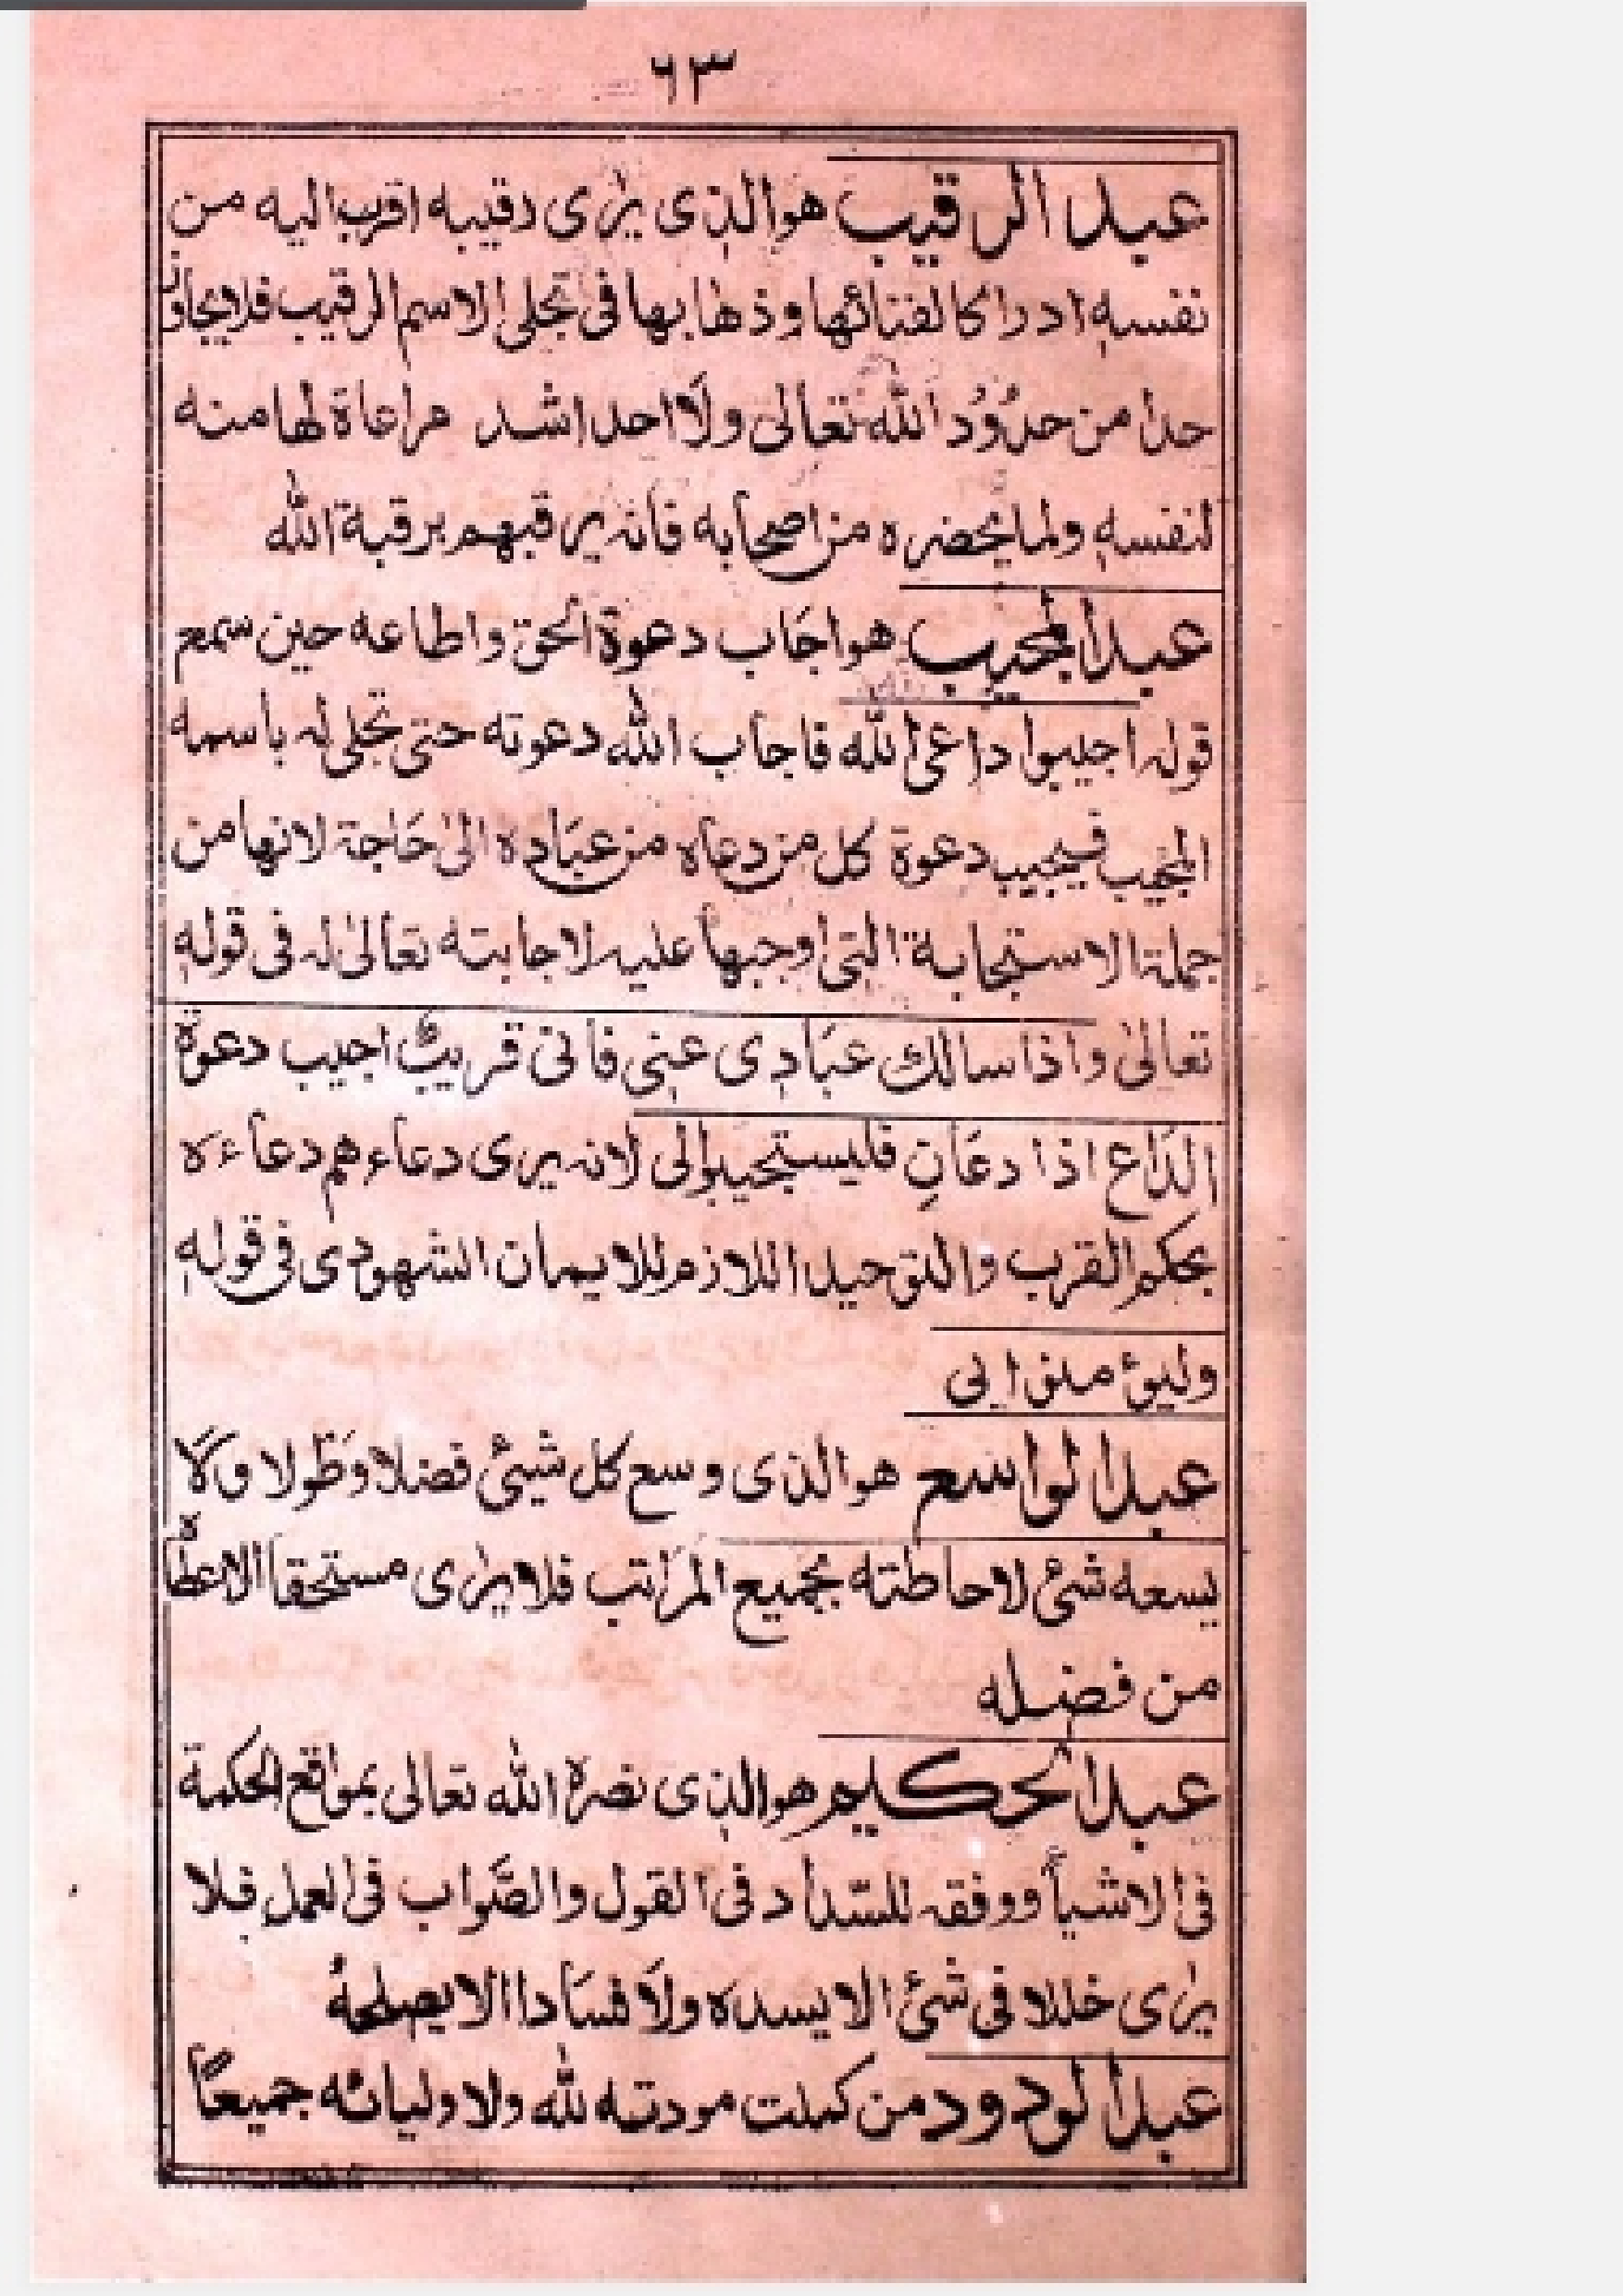 ٦٣
عبد الرقیب هو الذی یرٰی رقیبه اقرب الیه من
نفسهٖ ادراکا لفنائها وذهابها فی تجلی الاسم الرقیب فلا یجاوز
حدا من حدُوُد الله تعالیٰ ولا احد اشد مراعاة لها منه
لنفسهٖ ولما یحضره من اصحابه فانه یرقبهم برقبة الله
عبد المجیب هو اجاب دعوة الحق واطاعه حین سمع
قوله اجیبوا داعی الله فاجاب الله دعوته حتی تجلی له باسمه
المجیب فیجیب دعوة کل من دعاه من عباده الیٰ حاجة لانها من
جملة الاستجابة التی اوجبها علیه لاجابته تعالیٰ له فی قولهٖ
تعالیٰ واذا سالك عبادی عنی فانی قریبٌ اجیب دعوة
الداع اذا دعانِ فلیستجیبوا لی لانه یری دعاءهم دعاءه
بحکم القرب والتوحید اللازم للایمان الشهودی فی قولهٖ
ولیؤمنوا بی
عبد الواسع هو الذی وسع کل شیئ فضلا وطَولا ولا
یسعه شئ لاحاطته بجمیع المراتب فلا یرٰی مستحقا الا اعطاه
من فضله
عبد الحکیم هو الذی بصره الله تعالی بمواقع الحکمة
فی الاشیأ ووفقه للسّداد فی القول والصَّواب فی العمل فلا
یرٰی خللا فی شئ الا یسده ولا فسادا الا یصلحهٗ
عبد الودود من کملت مودته لله ولاولیائه جمیعاً